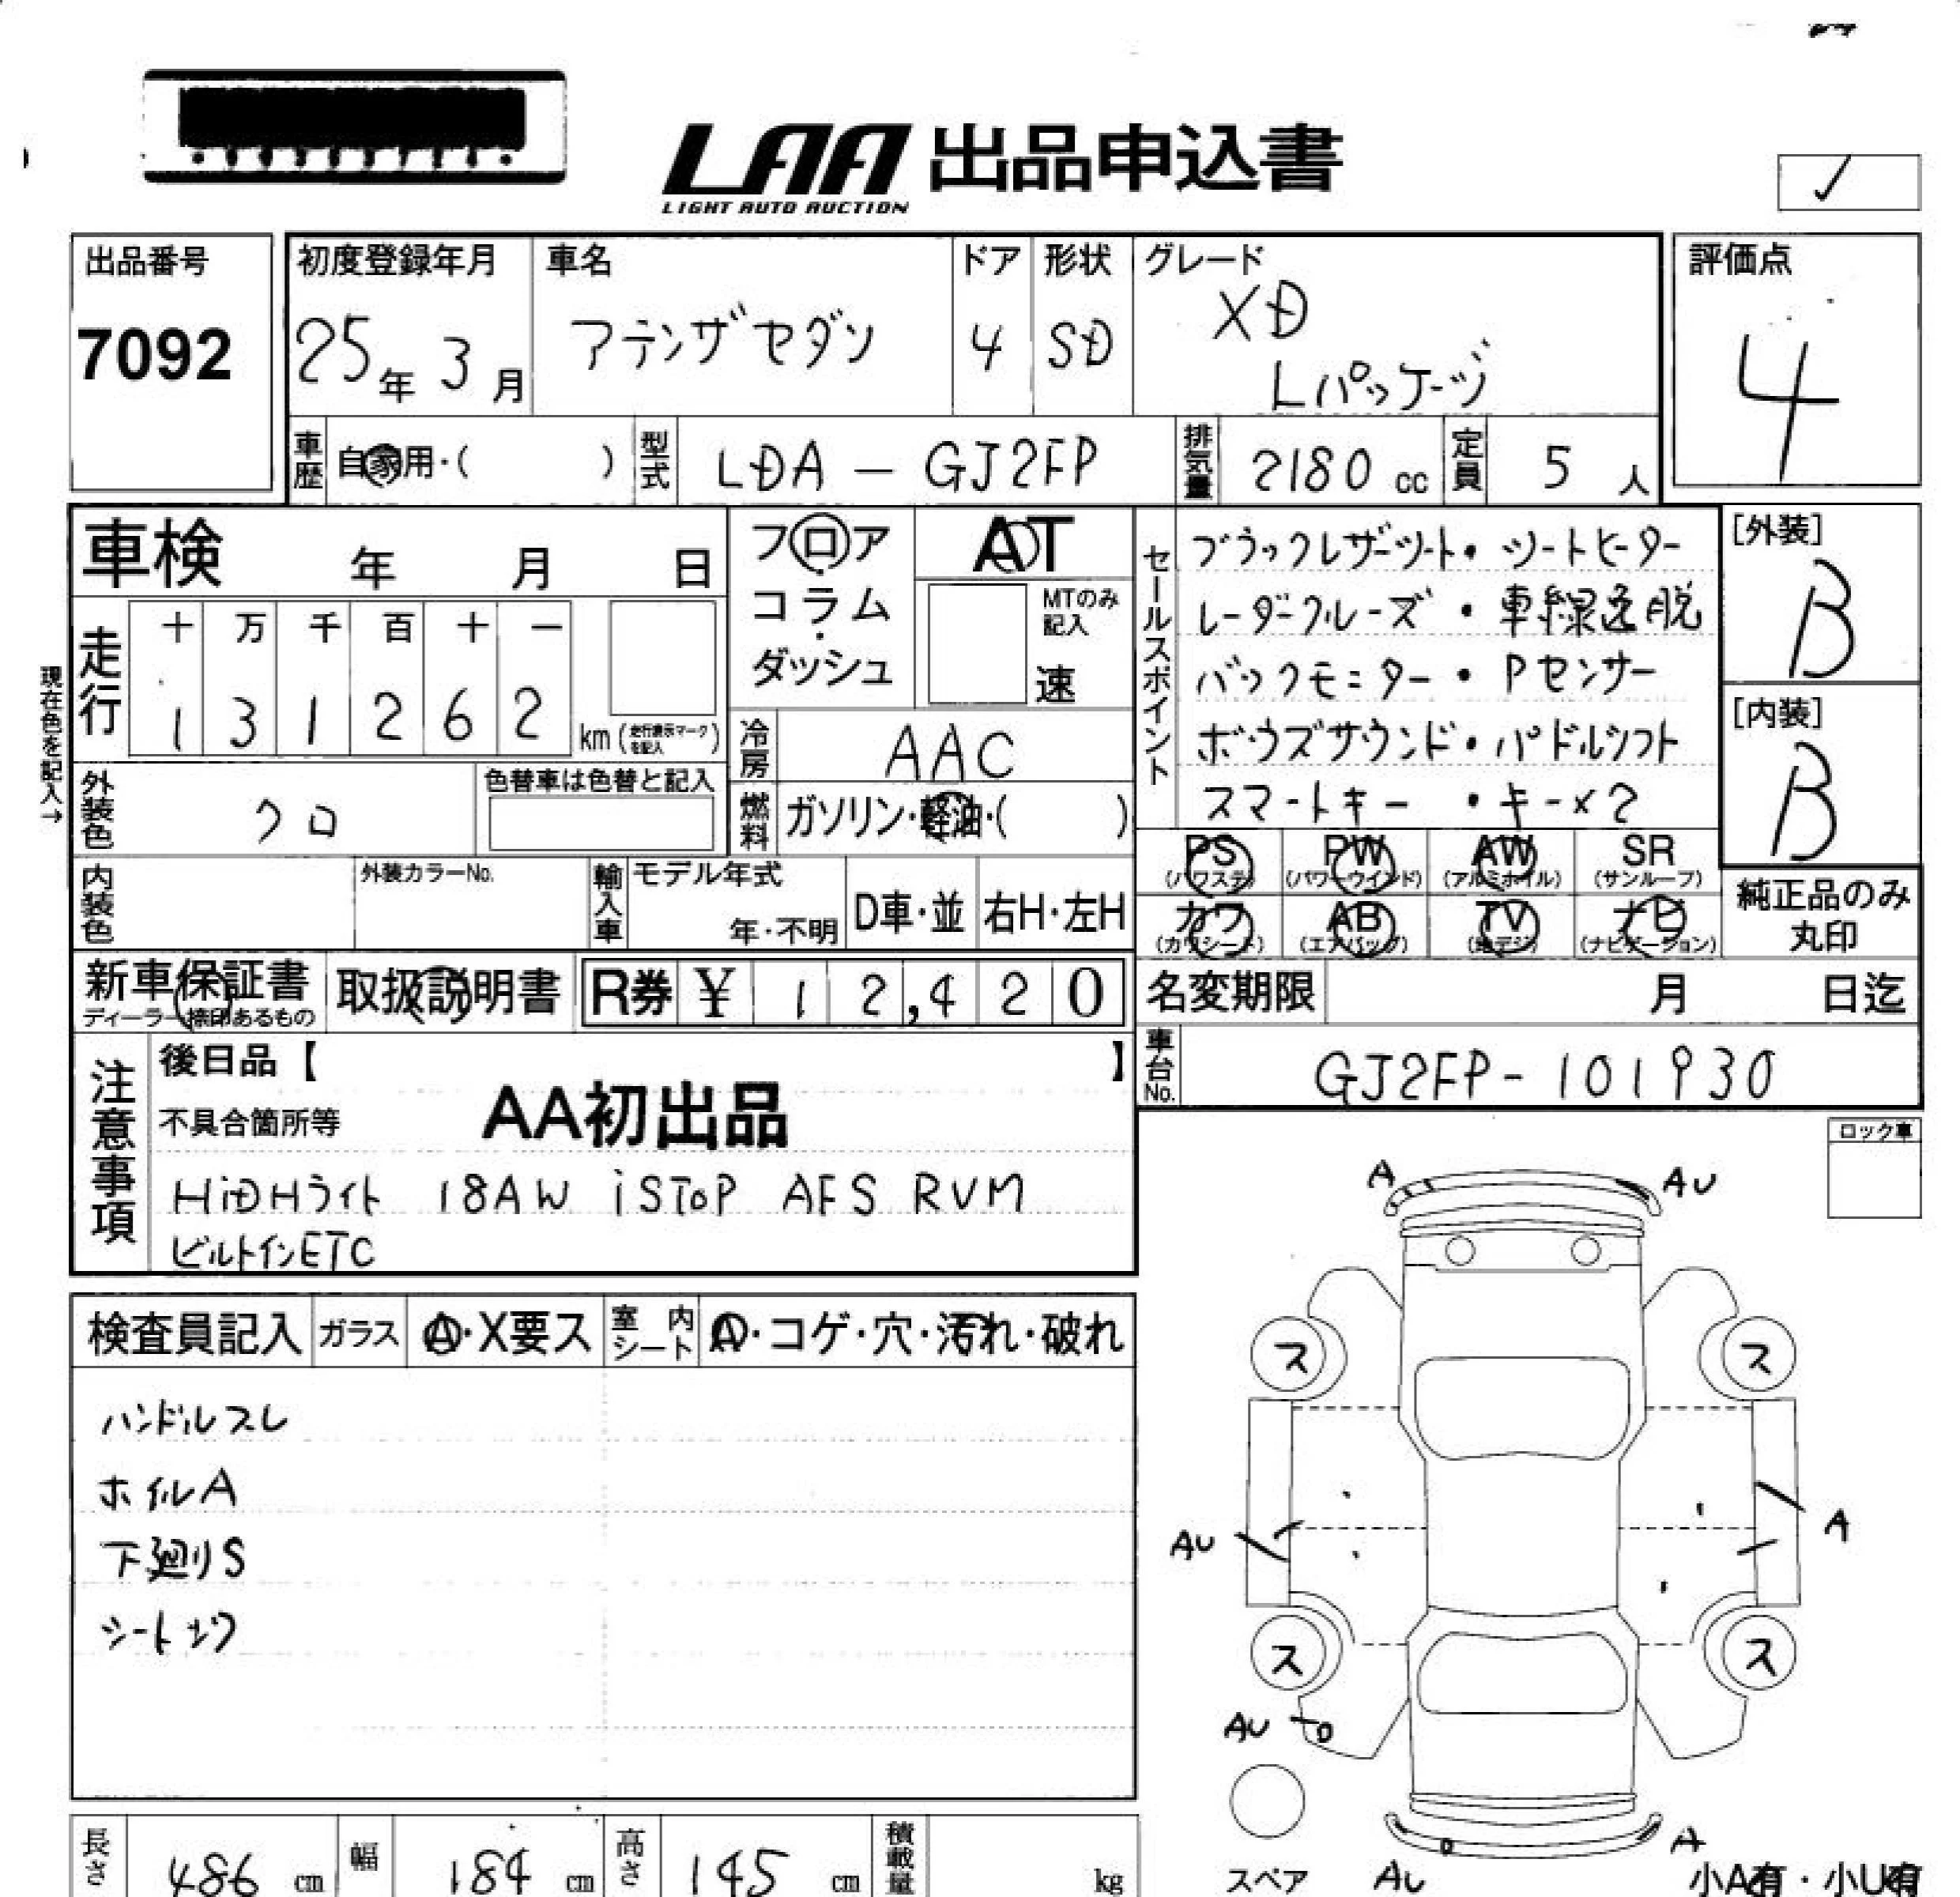 LAA 出品申込書
LIGHT AUTO AUCTION
出品番号
7092
初度登録年月
25年 3月
車名
アテンザセダン
ドア
4
形状
SD
グレード
XD
Lパッケージ
評価点
4
車歴 自家用・( )
型式 LDA - GJ2FP
排気量 2180 cc
定員 5 人
車検 年 月 日
フロア・コラム・ダッシュ
AT
MTのみ記入
速
セールスポイント
ブラックレザーシート・シートヒーター
レーダークルーズ・車線逸脱
バックモニター・Pセンサー
ボウズサウンド・パドルシフト
スマートキー・キー×2
[外装]
B
[内装]
B
現在色を記入→
走行
十 万 千 百 十 一
1 3 1 2 6 2 km (走行表示マークを記入)
冷房 AAC
外装色 クロ
色替車は色替と記入
燃料 ガソリン・軽油・( )
内装色
外装カラーNo.
輸入車
モデル年式
年・不明
D車・並
右H・左H
PS (パワステ)
PW (パワーウインド)
AW (アルミホイル)
SR (サンルーフ)
カワ (カワシート)
AB (エアバッグ)
TV (地デジ)
ナビ (ナビゲーション)
純正品のみ
丸印
新車保証書
ディーラー捺印あるもの
取扱説明書
R券 ¥ 12,420
名変期限 月 日迄
車台No. GJ2FP-101930
注意事項
後日品【 】
不具合箇所等
AA初出品
HiDHライト 18AW iSToP AFS RVM
ビルトインETC
ロック車
検査員記入
ガラス A・X要ス
室内シート A・コゲ・穴・汚れ・破れ
ハンドルスレ
ホイルA
下廻りS
A
AU
ス
ス
AU
A
ス
ス
AU
A
AU
スペア
小A有・小U有
長さ 486 cm
幅 184 cm
高さ 145 cm
積載量 kg